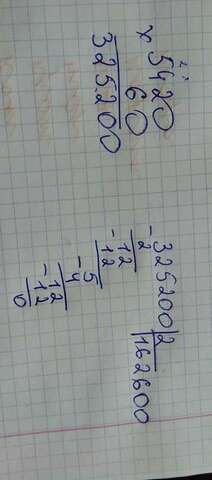 2 1
× 5420
60
325200
- 325200 | 2
2 | 162600
- 12
12
- 5
4
- 12
12
0